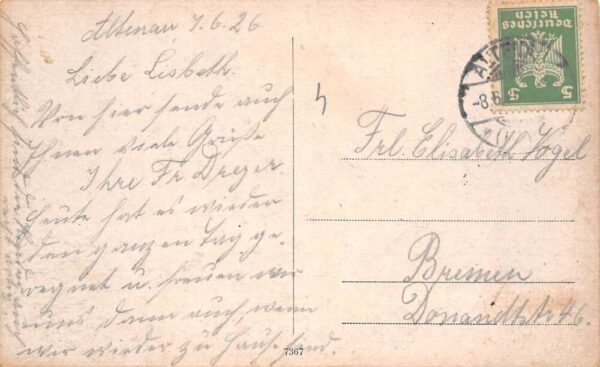 Altenau 7.6.26
Liebe Lisbeth.
Von hier sende auch
Ihnen viele Grüße
Ihre Fr. Dreyer.
heute hat es wieder
den ganzen Tag ge-
regnet u. freuen wir
uns dann auch, wenn
wir wieder zu Hause sind.
Deutsches
Reich
5 5
-8.6
Frl. Elisabeth Vogel
Bremen
Donandtstr 46.
7367